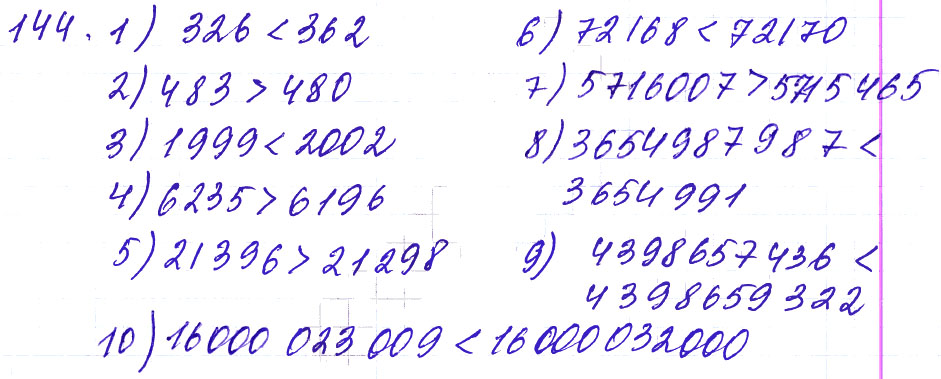 144. 1) 326 < 362
2) 483 > 480
3) 1999 < 2002
4) 6235 > 6196
5) 21396 > 21298
6) 72168 < 72170
7) 5716007 > 5715465
8) 3654987987 <
3654991
9) 4398657436 <
4398659322
10) 16000 023 009 < 16000032000